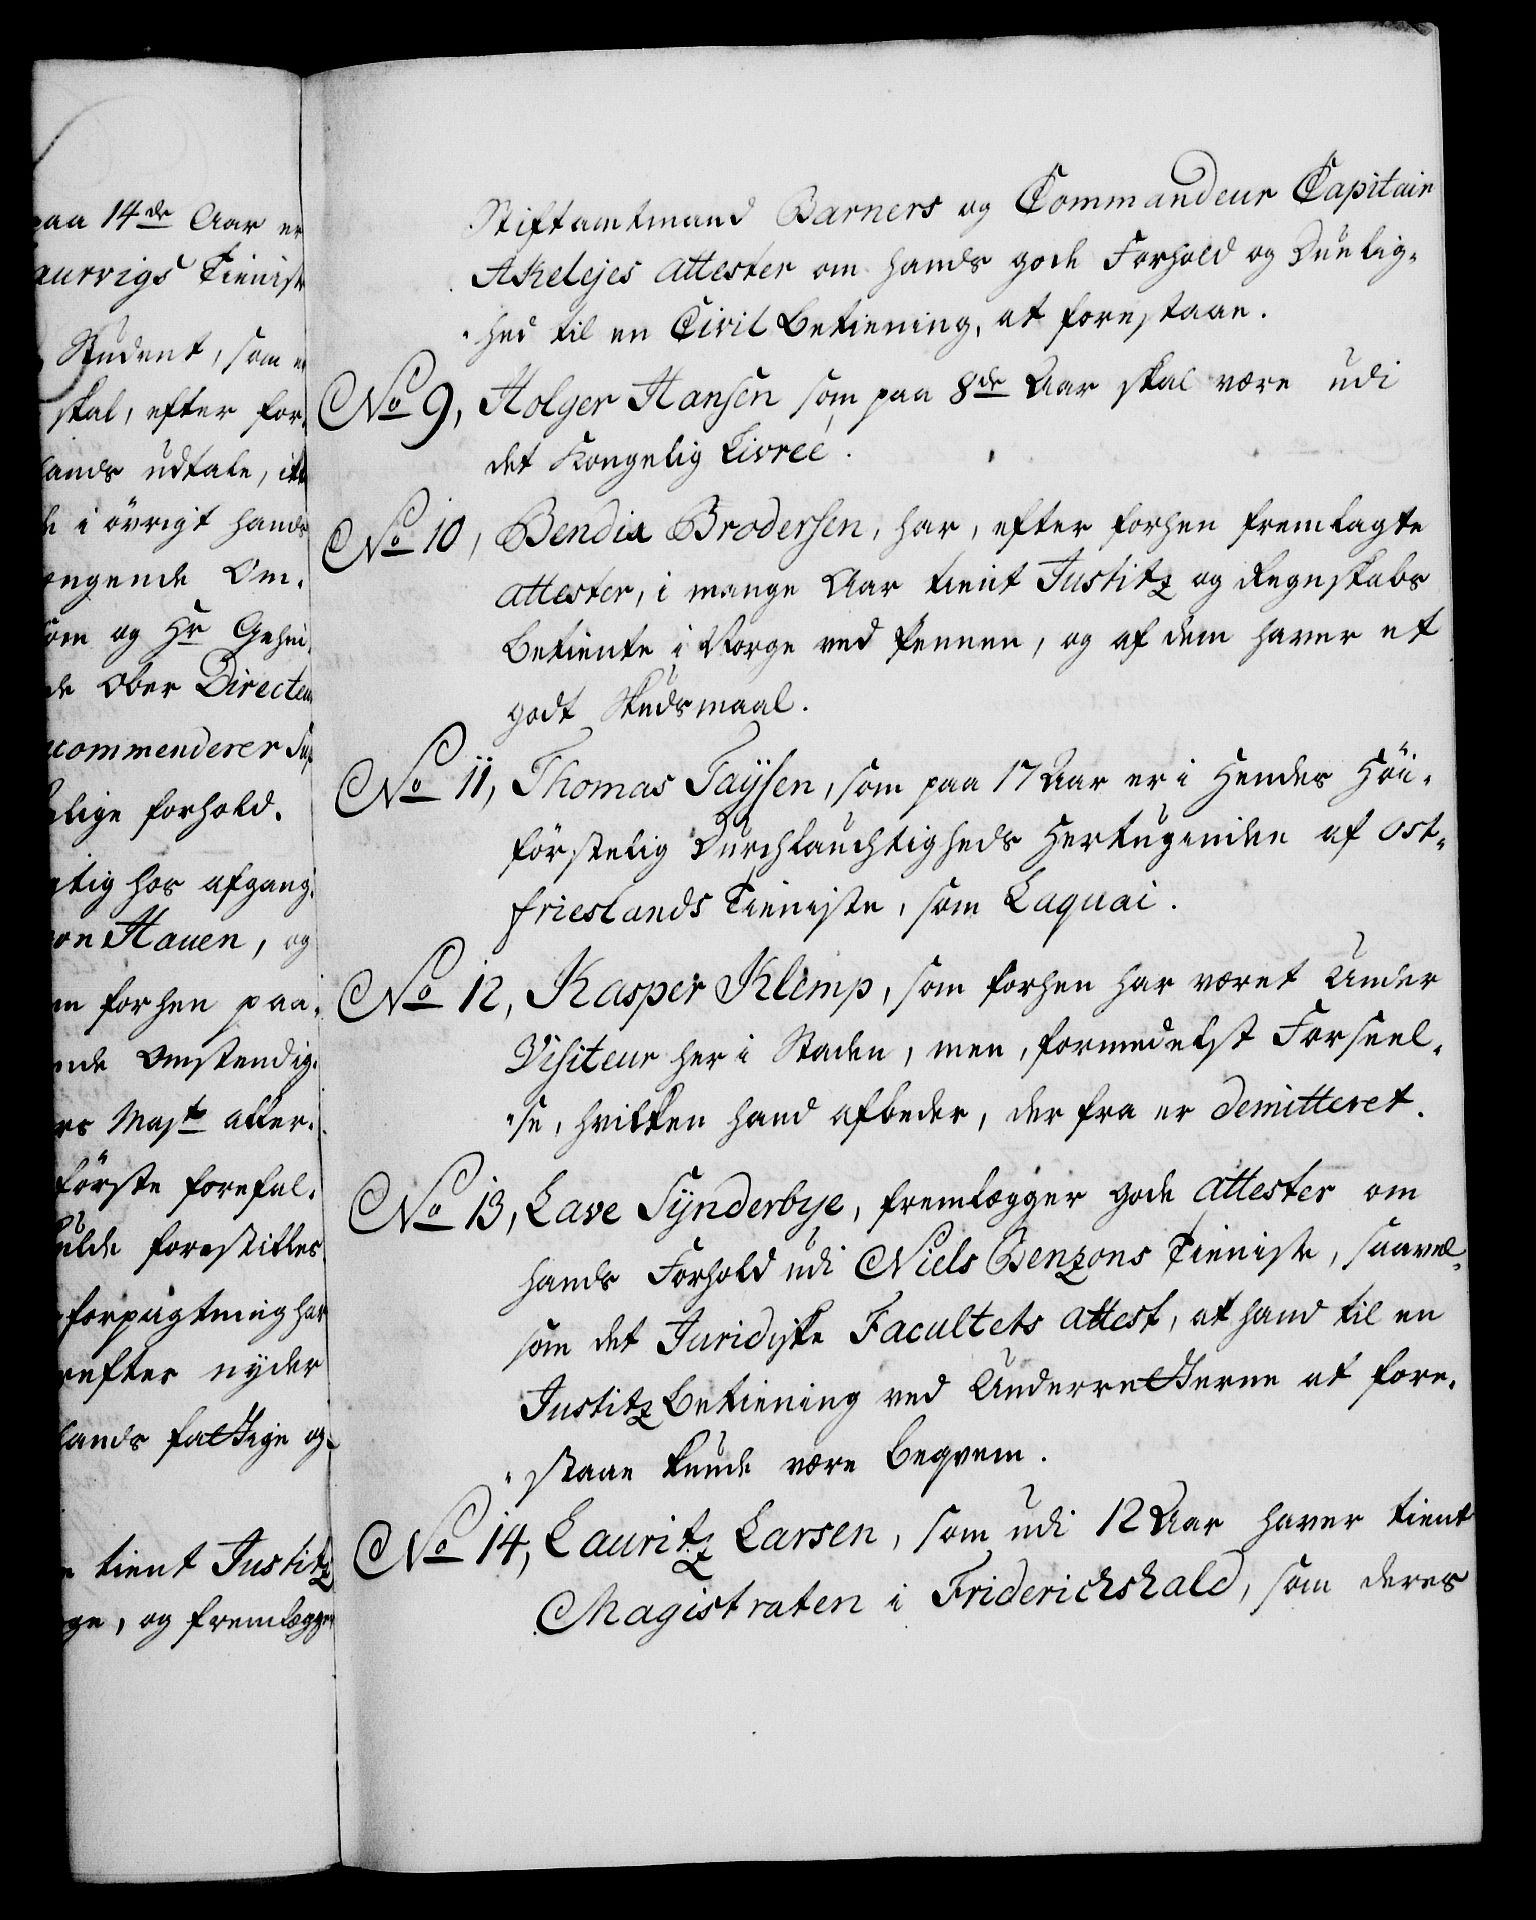 paa 14de Aar er
aurvigs Tieniste
Student, som er
skal, efter for,
lands udtale, ik
i övrigt hands
engende Om,
som og Hr Gehei,
de Ober Directeu
commenderer Sup
lige forhold.
tig hos afgang,
von Hauen, og
forhen paa,
nde Omstendig,
rs Mayts aller,
förste forefal,
fulde forestilles
forpagtning har
refter nyder
lands fattige og
tient Justitz
ge, og fremlegger
Stiftamtmand Barners og Commandeur Capitain
Akelejes attester om hands gode Forhold og Duelig,
hed til en Civil Betiening, at forestaae.
No 9, Holger Hansen som paa 8de Aar skal være udi
det Kongelig Livree.
No 10, Bendix Brodersen, har, efter forhen fremlagte
attester, i mange Aar tient Justitz og Regnskabs
Betiente i Norge ved Pennen, og af dem haver et
godt Skudsmaal.
No 11, Thomas Taysen, som paa 17 Aar er i Hendes Höi,
förstelig Durchlauchtigheds Hertuginden af Ost,
frieslands Tieniste, som Laquai.
No 12, Kasper Klemp, som forhen har været Under
Visiteur her i Staden, men, formedelst Forseel,
se, hvilken hand afbeder, der fra er demitteret.
No 13, Lave Synderbye, fremlegger gode attester om
hands Forhold udi Niels Benzons Tieniste, saavel,
som det Juridiske Facultets attest, at hand til en
Justitz Betiening ved Underretterne at fore,
staae kunde være beqvem.
No 14, Lauritz Larsen, som udi 12 Aar haver tient
Magistraten i Friderichshald, som deres